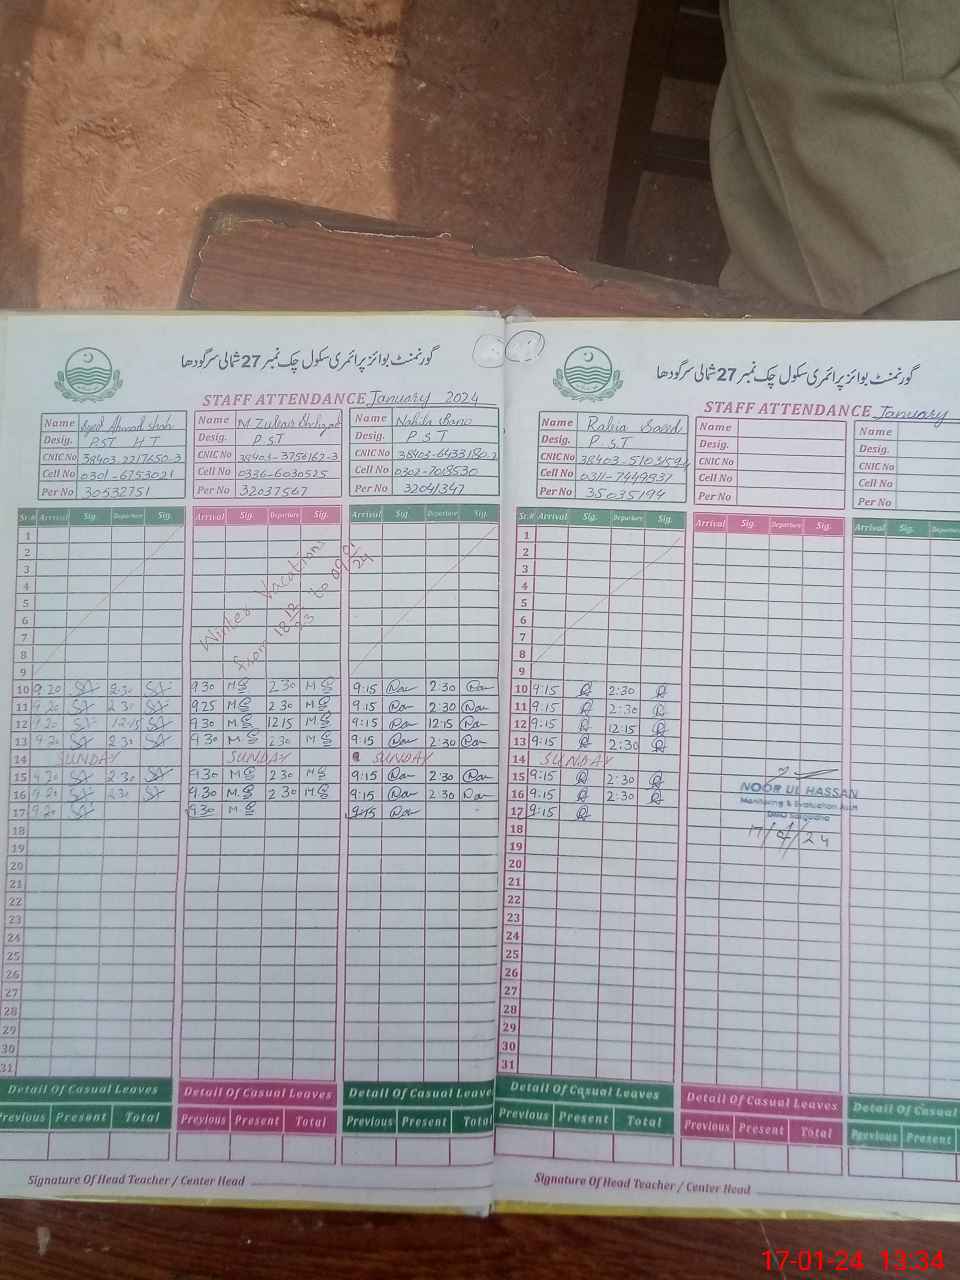 گورنمنٹ بوائز پرائمری سکول چک نمبر 27 شمالی سرگودھا
STAFF ATTENDANCE January 2024
Name Syed Ahmad Shah
Desig. PST HT
CNIC No 38403-2217650-3
Cell No 0301-6753021
Per No 30532751
Name M Zubair
Desig. PST
CNIC No 38403-3756162-3
Cell No 0336-6030525
Per No 32037567
Name Nahila Bano
Desig. PST
CNIC No 38403-6433180-2
Cell No 0302-7018530
Per No 32041347
Sr.# Arrival Sig. Departure Sig. Arrival Sig. Departure Sig. Arrival Sig. Departure Sig.
1
2
3
4
5
6
7
8
9
Winter Vacations
from 18 12/23 to 09 01/24
10 9.20 2:30 9.30 MS 2 30 MS 9:15 2:30
11 9.20 2.30 9.25 MS 2 30 MS 9.15 2.30
12 9.20 12.15 9.30 MS 12 15 MS 9:15 12:15
13 9.20 2.30 9.30 MS 2 30 MS 9:15 2:30
14 SUNDAY SUNDAY SUNDAY
15 9.20 2.30 9.30 MS 2 30 MS 9:15 2:30
16 9.20 2.30 9.30 MS 2 30 MS 9:15 2:30
17 9.20 9.30 MS 9:15
18
19
20
21
22
23
24
25
26
27
28
29
30
31
Detail Of Casual Leaves Detail Of Casual Leaves Detail Of Casual Leaves
Previous Present Total Previous Present Total Previous Present Total
Signature Of Head Teacher / Center Head
گورنمنٹ بوائز پرائمری سکول چک نمبر 27 شمالی سرگودھا
STAFF ATTENDANCE January
Name Rabia Saeed
Desig. PST
CNIC No
Cell No 0311-7449937
Per No 35035194
Name
Desig.
CNIC No
Cell No
Per No
Name
Desig.
CNIC No
Cell No
Per No
Sr.# Arrival Sig. Departure Sig. Arrival Sig. Departure Sig. Arrival Sig.
1
2
3
4
5
6
7
8
9
10 9:15 2:30
11 9:15 2:30
12 9:15 12:15
13 9:15 2:30
14 SUNDAY
15 9:15 2:30
16 9:15 2:30
17 9:15
18
19
20
21
22
23
24
25
26
27
28
29
30
31
NOOR UL HASSAN
Monitoring & Evaluation
DMO Sargodha
17/01/24
Detail Of Casual Leaves Detail Of Casual Leaves Detail Of Casual
Previous Present Total Previous Present Total Previous Present
Signature Of Head Teacher / Center Head
17-01-24 13:34